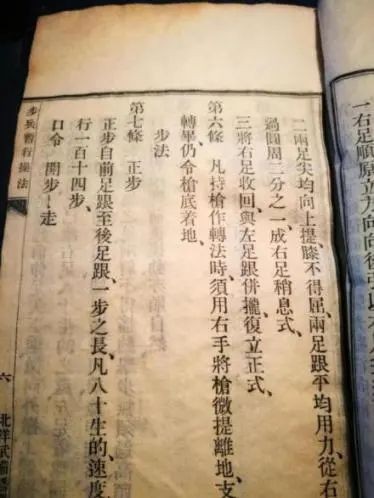 一右足順原立方向向後引以
二兩足尖均向上提膝不得屈兩足跟平均用力從右
過圓周三分之一、成右足稍息式、
三將右足收回、與左足跟併攏、復立正式、
第六條 凡持槍作轉法時須用右手將槍微提離地、支
轉畢仍令槍底着地、
步法
第七條 正步
正步自前足跟至後足跟、一步之長、凡八十生的、速度
行一百十四步、
口令 開步～走
步兵暫行操法
六
北洋武備